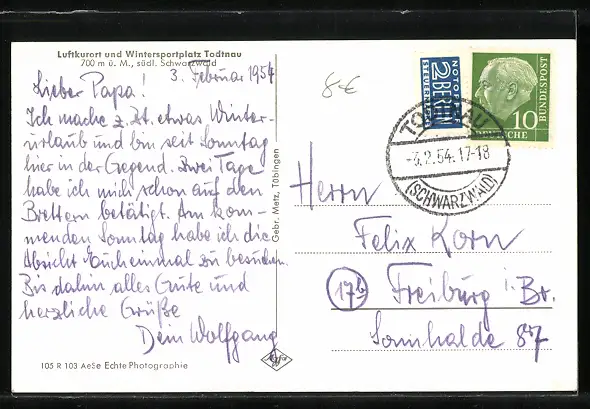 Luftkurort und Wintersportplatz Todtnau
700 m ü. M., südl. Schwarzwald
3. Februar 1954
Lieber Papa!
Ich mache z. Zt. etwas Winter-
urlaub und bin seit Sonntag
hier in der Gegend. Zwei Tage
habe ich mich schon auf den
Brettern betätigt. Am kom-
menden Sonntag habe ich die
Absicht Euch einmal zu besuchen.
Bis dahin alles Gute und
herzliche Grüße
Dein Wolfgang
105 R 103 AeSe Echte Photographie
Gebr. Metz, Tübingen
8€
NOTOPFER
2 BERLIN
STEUERMARKE
10
DEUTSCHE
BUNDESPOST
TODTNAU
-3.2.54.17-18
(SCHWARZWALD)
Herrn
Felix Korn
17b Freiburg i. Br.
Sonnhalde 87